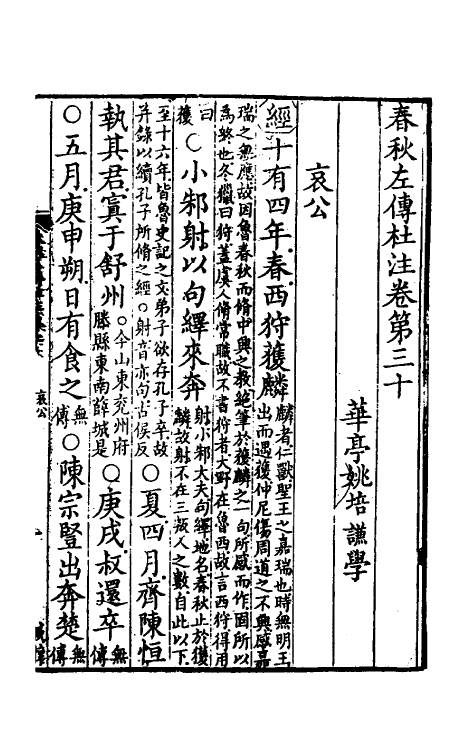 春秋左傳杜注卷第三十
華亭姚培謙學
哀公
經十有四年春西狩獲麟麟者仁獸聖王之嘉瑞也時無明王出而遇獲仲尼傷周道之不興感嘉
瑞之無應故因魯春秋而脩中興之教絕筆於獲麟之一句所感而作固所以為終也冬獵曰狩蓋虞人脩常職故不書狩者大野在魯西故言西狩得用
曰獲○小邾射以句繹來奔射小邾大夫句繹地名春秋止於獲麟故射不在三叛人之數自此以下
至十六年皆魯史記之文弟子欲存孔子卒故并錄以續孔子所脩之經○射音亦句古侯反○夏四月齊陳恒
執其君寘于舒州○今山東兗州府滕縣東南薛城是○庚戌叔還卒無傳
○五月庚申朔日有食之無傳○陳宗豎出奔楚無傳
哀公
一